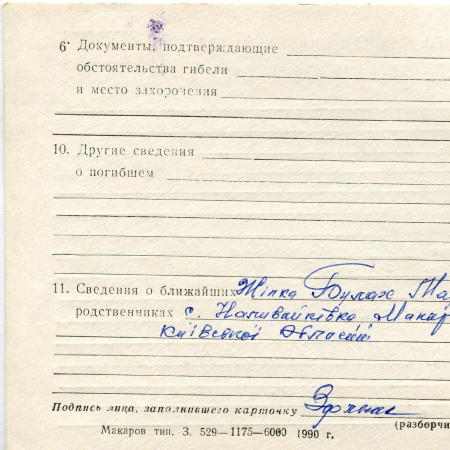 6. Документы, подтверждающие
обстоятельства гибели
и место захоронения
10. Другие сведения
о погибшем
11. Сведения о ближайших Жінка Булах Ма
родственниках с. Наливайківка Макар
Київської області
Подпись лица, заполнившего карточку
(разборчи
Макаров тип. З. 529—1175—6000 1990 г.